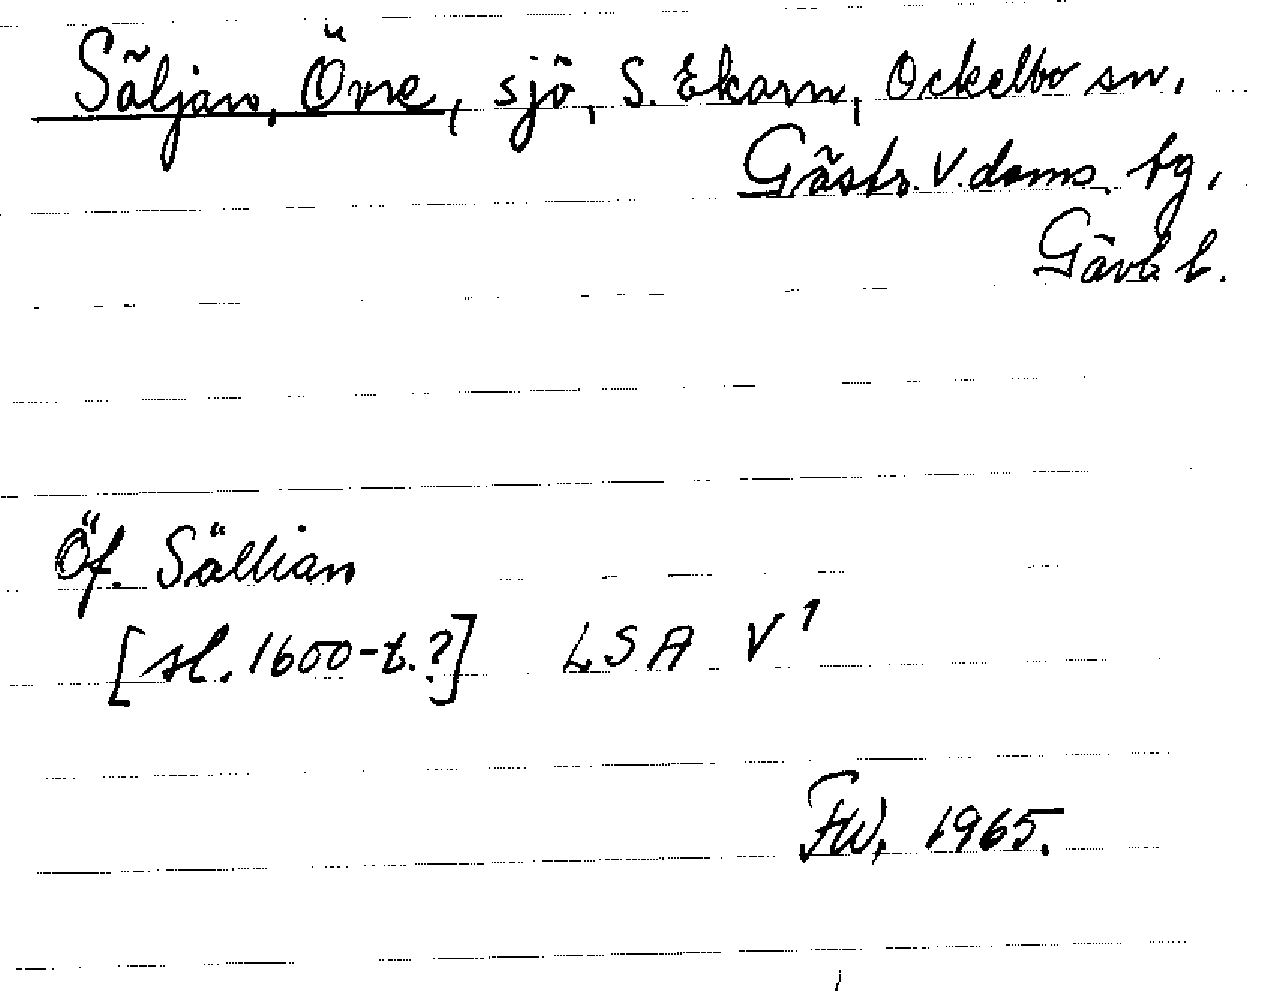 Säljan, Övre, sjö, S. Ekarn, Ockelbo sn,
Gästr. V. doms. tg,
Gävl. l.
Öf. Sällian
[sl. 1600-t.?] LSA V1
FW, 1965.